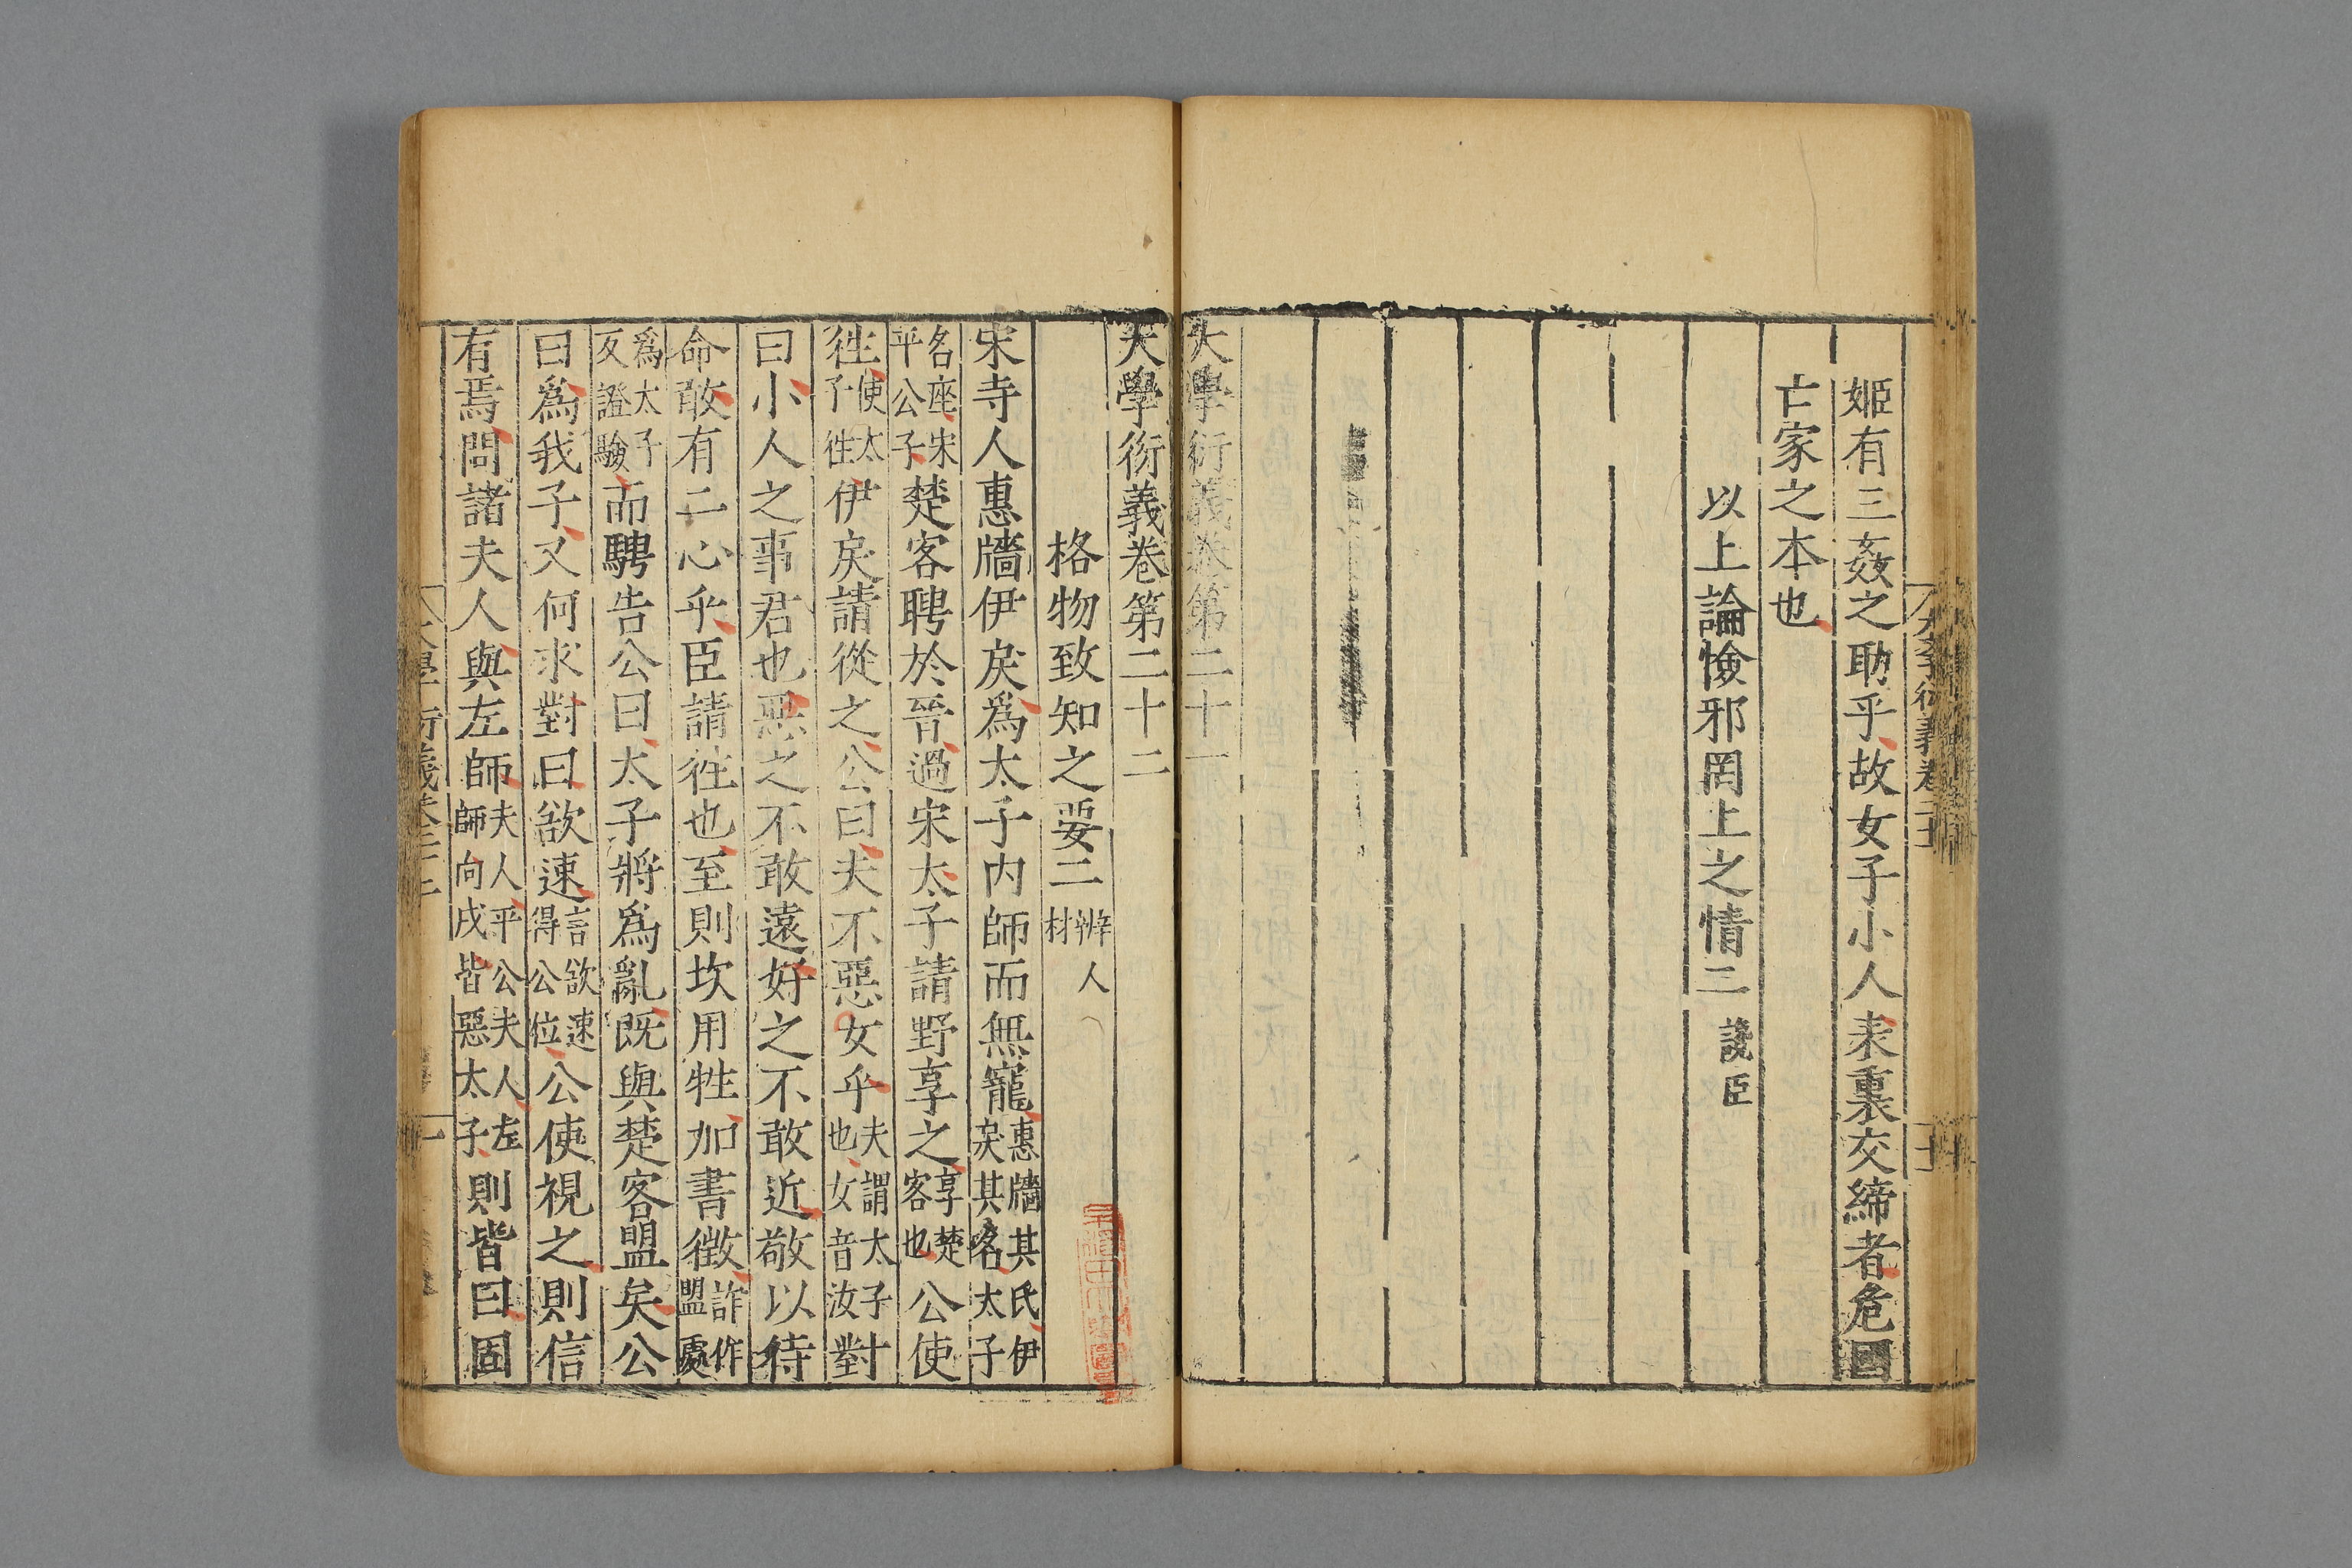 姬有三姦之助乎故女子小人表裏交締者危國
亡家之本也
以上論憸邪罔上之情三 讒臣
大學衍義卷第二十一
大學衍義卷第二十二
格物致知之要二 辨人材
宋寺人惠牆伊戾爲太子內師而無寵惠牆其氏伊戾其名太子
名座宋平公子楚客聘於晉過宋太子請野享之享楚客也公使
徃使太子徃伊戾請從之公曰夫不惡女乎夫謂太子也女音汝對
曰小人之事君也惡之不敢遠好之不敢近敬以待
命敢有二心乎臣請徃也至則坎用牲加書徵詐作盟處
爲太子反證驗而騁告公曰太子將爲亂既與楚客盟矣公
曰爲我子又何求對曰欲速言欲速得公位公使視之則信
有焉問諸夫人與左師夫人平公夫人左師向戌皆惡太子則皆曰固